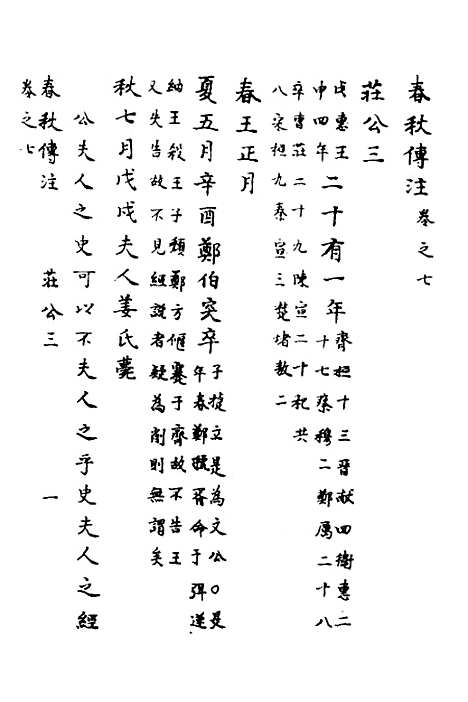 春秋傳注卷之七
莊公三
戊申惠王四年二十有一年齊桓十三晉献四衛惠二十七蔡穆二鄭厲二十八
卒曹莊二十九陳宣二十杞共八宋桓九秦宣三楚堵敖二
春王正月
夏五月辛酉鄭伯突卒子㨗立是為文公〇是年春鄭虢胥命于弭遂
納王殺王子頹鄭方偃蹇于齊故不告王
又失告故不見經說者疑為削則無謂矣
秋七月戊戌夫人姜氏薨
公夫人之史可以不夫人之乎史夫人之經
春秋傳注卷之七 莊公三 一